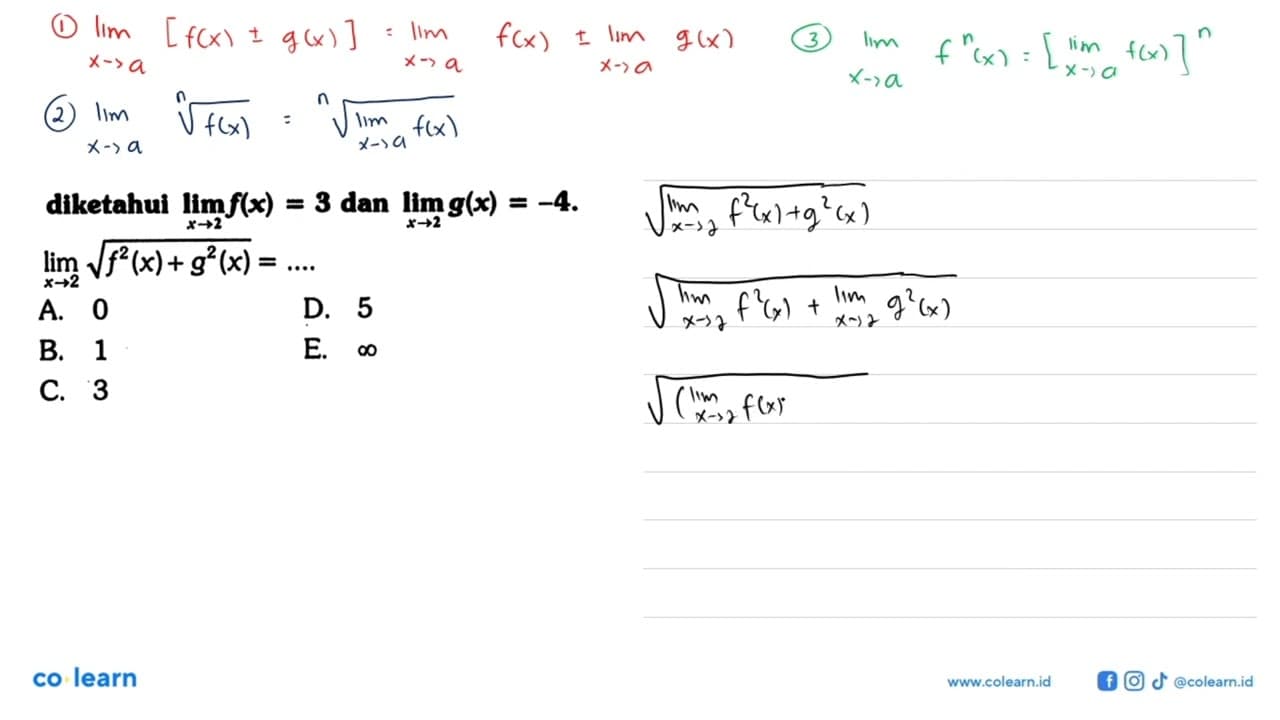 ① lim x→a [f(x) ± g(x)] = lim x→a f(x) ± lim x→a g(x)
③ lim x→a fⁿ(x) = [lim x→a f(x)]ⁿ
② lim x→a ⁿ√f(x) = ⁿ√lim x→a f(x)
diketahui lim x→2 f(x) = 3 dan lim x→2 g(x) = –4.
lim x→2 √f²(x) + g²(x) = ....
A. 0
D. 5
B. 1
E. ∞
C. 3
√lim x→2 f²(x) + g²(x)
√lim x→2 f²(x) + lim x→2 g²(x)
√(lim x→2 f(x)
co learn
www.colearn.id
@colearn.id